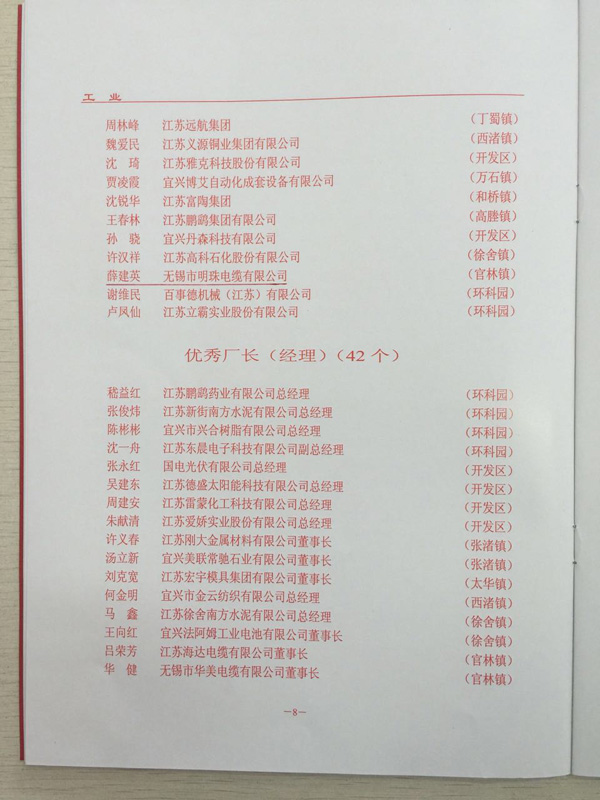 工 业
周林峰 江苏远航集团 （丁蜀镇）
魏爱民 江苏义源铜业集团有限公司 （西渚镇）
沈 琦 江苏雅克科技股份有限公司 （开发区）
贾凌霞 宜兴博艾自动化成套设备有限公司 （万石镇）
沈锐华 江苏富陶集团 （和桥镇）
王春林 江苏鹏鹞集团有限公司 （高塍镇）
孙 骁 宜兴丹森科技有限公司 （开发区）
许汉祥 江苏高科石化股份有限公司 （徐舍镇）
薛建英 无锡市明珠电缆有限公司 （官林镇）
谢维民 百事德机械（江苏）有限公司 （环科园）
卢凤仙 江苏立霸实业股份有限公司 （环科园）
优秀厂长（经理）（42 个）
嵇益红 江苏鹏鹞药业有限公司总经理 （环科园）
张俊炜 江苏新街南方水泥有限公司总经理 （环科园）
陈彬彬 宜兴市兴合树脂有限公司总经理 （环科园）
沈一舟 江苏东晨电子科技有限公司副总经理 （环科园）
张永红 国电光伏有限公司总经理 （开发区）
吴建东 江苏德盛太阳能科技有限公司总经理 （开发区）
周建安 江苏雷蒙化工科技有限公司总经理 （开发区）
朱献清 江苏爱娇实业股份有限公司总经理 （开发区）
许义春 江苏刚大金属材料有限公司董事长 （张渚镇）
汤立新 宜兴美联常驰石业有限公司董事长 （张渚镇）
刘克宽 江苏宏宇模具集团有限公司董事长 （太华镇）
何金明 宜兴市金云纺织有限公司总经理 （西渚镇）
马 鑫 江苏徐舍南方水泥有限公司总经理 （徐舍镇）
王向红 宜兴法阿姆工业电池有限公司董事长 （徐舍镇）
吕荣芳 江苏海达电缆有限公司董事长 （官林镇）
华 健 无锡市华美电缆有限公司董事长 （官林镇）
—8—